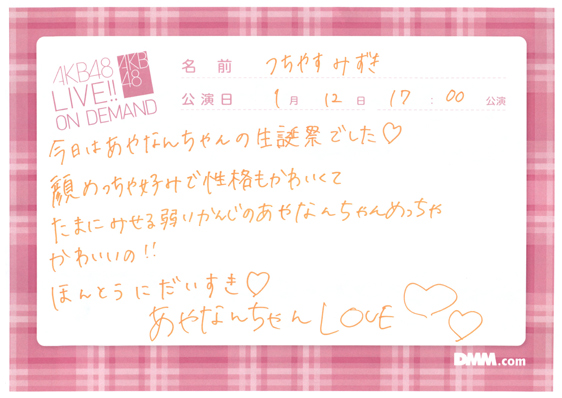 AKB48
LIVE!!
ON DEMAND
AKB
48
名前 つちやすみずき
公演日 9月 12日 17:00 公演
今日はあやなんちゃんの生誕祭でした♡
顔めっちゃ好みで性格もかわいくて
たまにみせる弱いかんじのあやなんちゃんめっちゃ
かわいいの!!
ほんとうにだいすき♡
あやなんちゃんLOVE♡♡
DMM.com